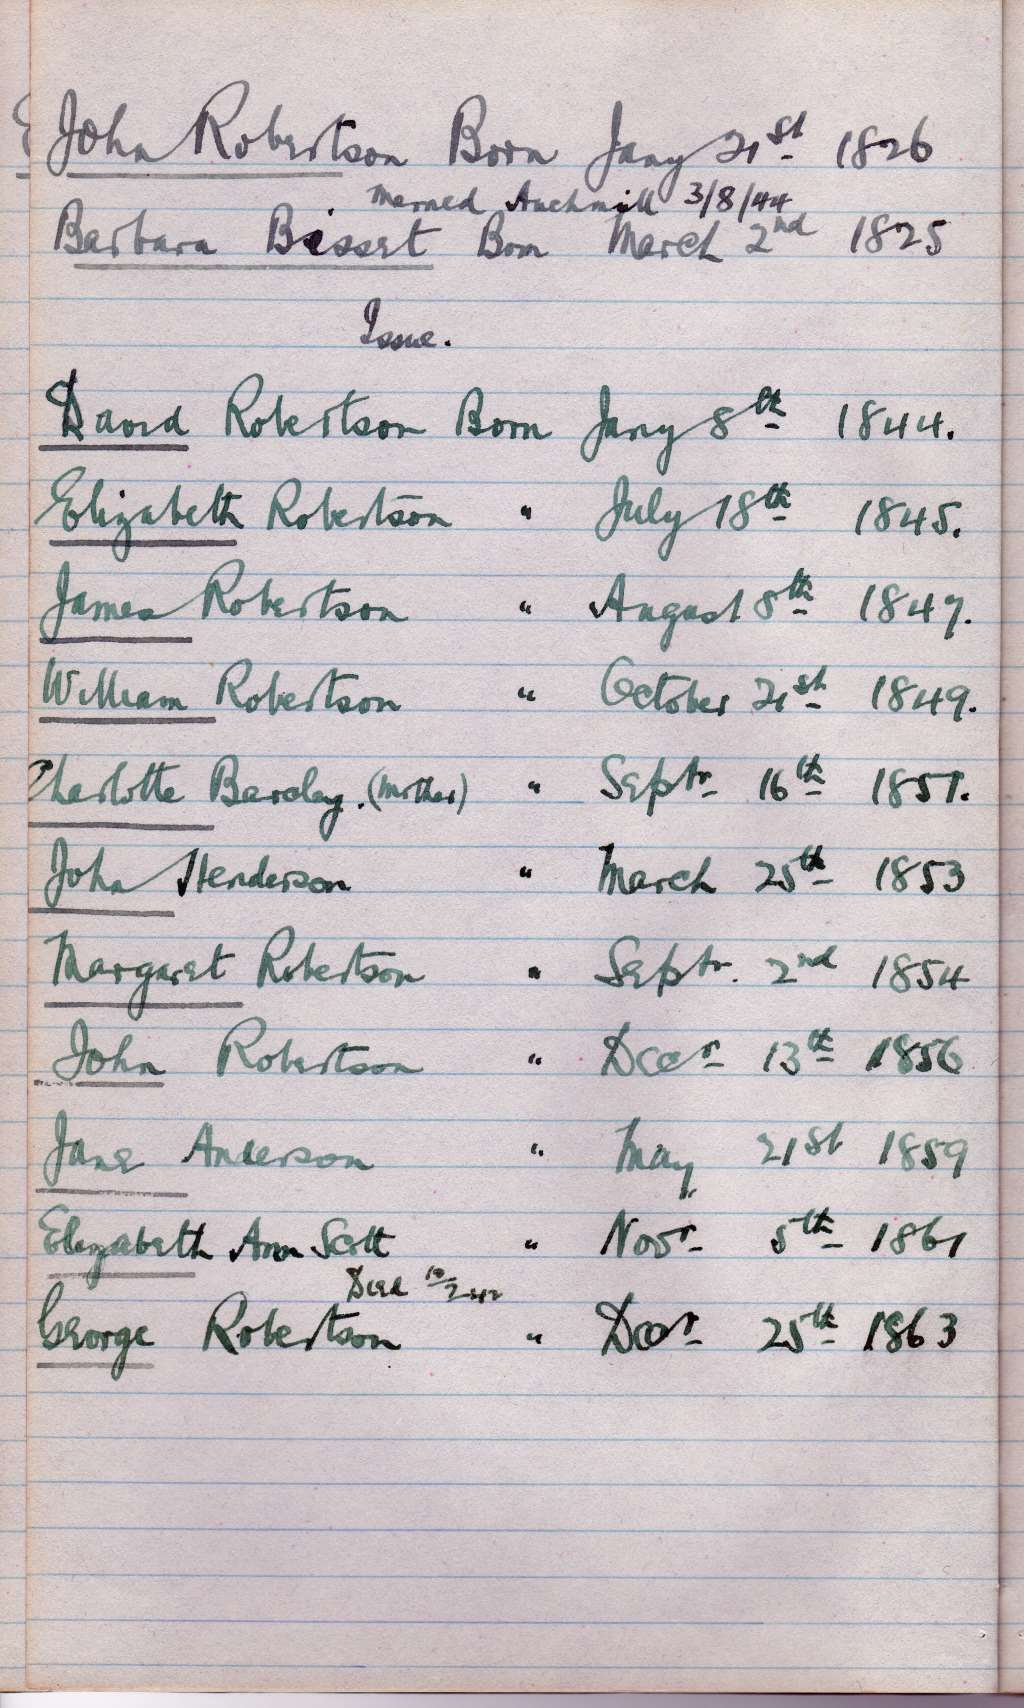 John Robertson Born Jany 21st 1826
Married Auchmill 3/8/44
Barbara Bisset Born March 2nd 1825
Issue.
David Robertson Born Jany 8th 1844.
Elizabeth Robertson " July 18th 1845.
James Robertson " August 8th 1847.
William Robertson " October 21st 1849.
Charlotte Barclay. (Mother) " Septr 16th 1851.
John Henderson " March 25th 1853
Margaret Robertson " Septr. 2nd 1854
John Robertson " Decr 13th 1856
Jane Anderson " May 21st 1859
Elizabeth Ann Scott " Novr 5th 1861
Died
George Robertson " Decr 25th 1863